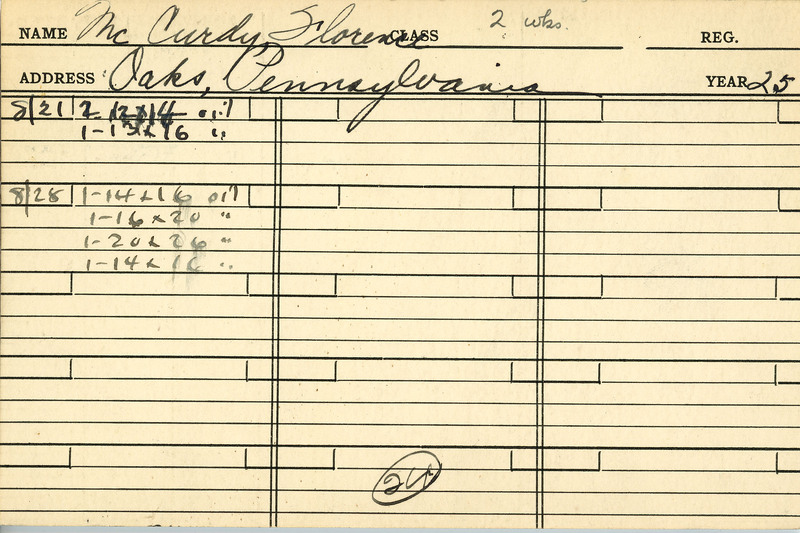 NAME Mc Curdy Florence CLASS 2 wks. REG.
ADDRESS Oaks, Pennsylvania YEAR 25
8/21 2 12x14 oil
1-13x16 "
8/28 1-14x16 oil
1-16x20 "
1-20x26 "
1-14x16 "